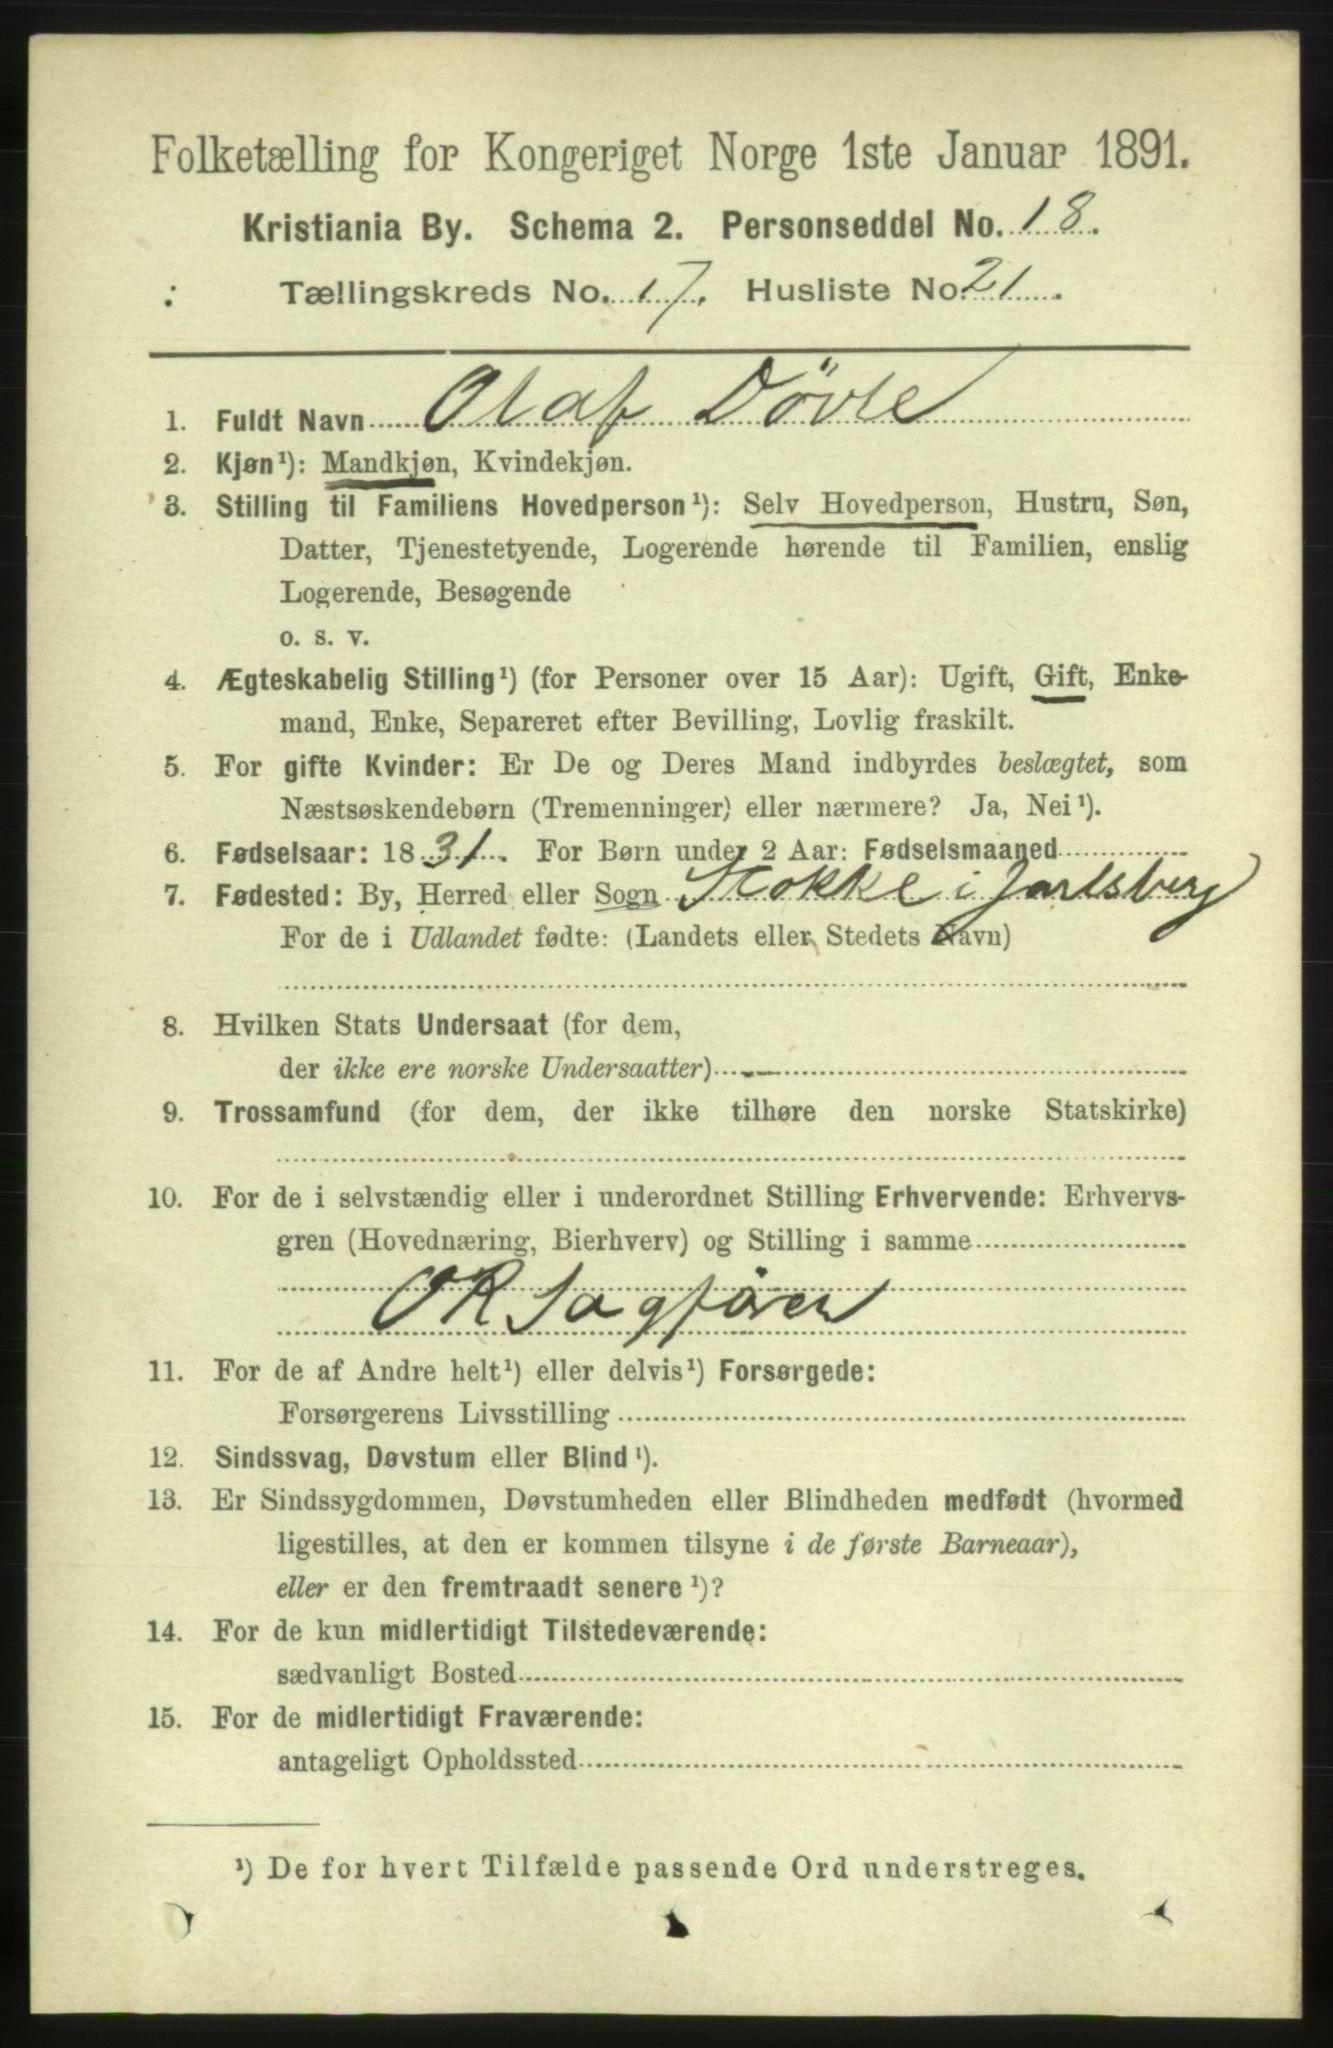 Folketælling for Kongeriget Norge 1ste Januar 1891.
Kristiania By. Schema 2. Personseddel No. 18.
: Tællingskreds No. 17. Husliste No. 21.
1. Fuldt Navn Olaf Døvle
2. Kjøn¹): Mandkjøn, Kvindekjøn.
3. Stilling til Familiens Hovedperson¹): Selv Hovedperson, Hustru, Søn,
Datter, Tjenestetyende, Logerende hørende til Familien, enslig
Logerende, Besøgende
o. s. v.
4. Ægteskabelig Stilling¹) (for Personer over 15 Aar): Ugift, Gift, Enke-
mand, Enke, Separeret efter Bevilling, Lovlig fraskilt.
5. For gifte Kvinder: Er De og Deres Mand indbyrdes beslægtet, som
Næstsøskendebørn (Tremenninger) eller nærmere? Ja, Nei¹).
6. Fødselsaar: 1831. For Børn under 2 Aar: Fødselsmaaned
7. Fødested: By, Herred eller Sogn Stokke i Jarlsberg
For de i Udlandet fødte: (Landets eller Stedets Navn)
8. Hvilken Stats Undersaat (for dem,
der ikke ere norske Undersaatter)
9. Trossamfund (for dem, der ikke tilhøre den norske Statskirke)
10. For de i selvstændig eller i underordnet Stilling Erhvervende: Erhvervs-
gren (Hovednæring, Bierhverv) og Stilling i samme
OR Sagfører
11. For de af Andre helt¹) eller delvis¹) Forsørgede:
Forsørgerens Livsstilling
12. Sindssvag, Døvstum eller Blind¹).
13. Er Sindssygdommen, Døvstumheden eller Blindheden medfødt (hvormed
ligestilles, at den er kommen tilsyne i de første Barneaar),
eller er den fremtraadt senere¹)?
14. For de kun midlertidigt Tilstedeværende:
sædvanligt Bosted
15. For de midlertidigt Fraværende:
antageligt Opholdssted
¹) De for hvert Tilfælde passende Ord understreges.